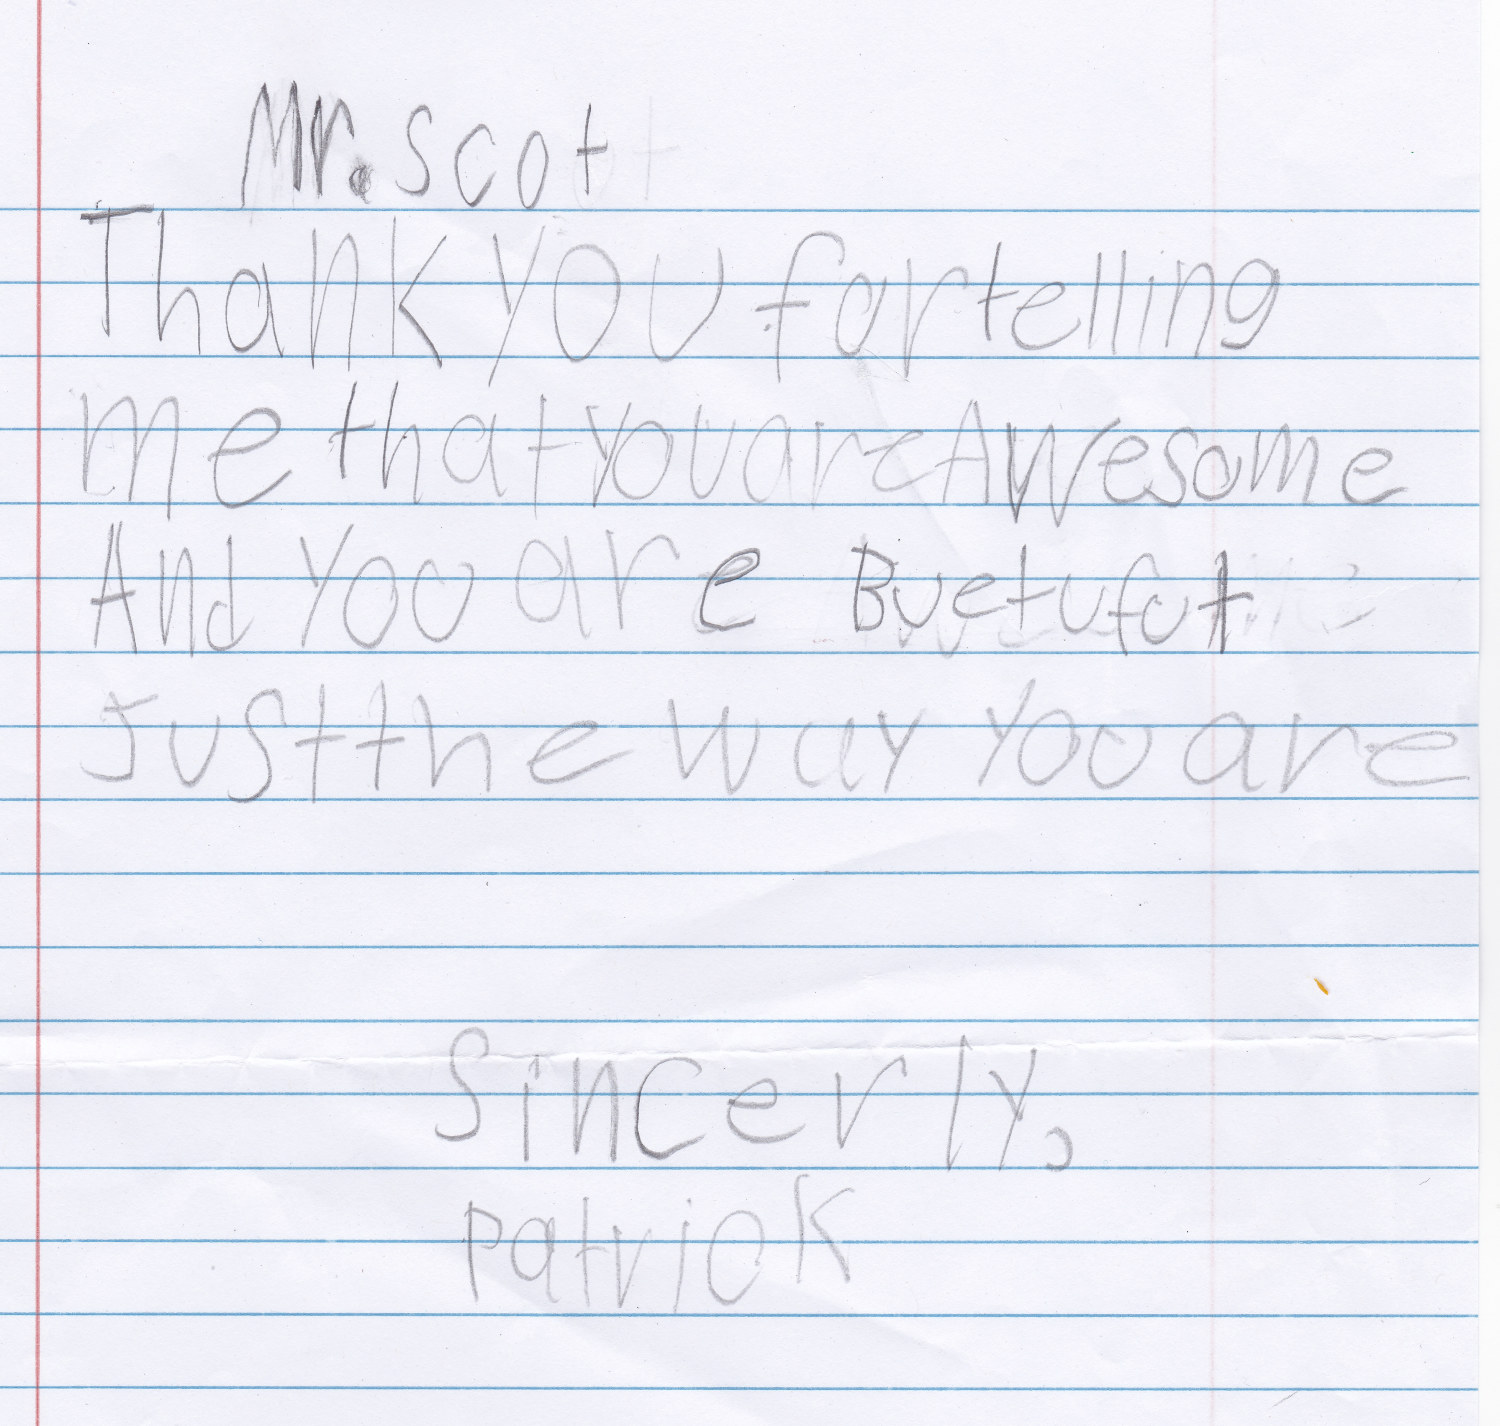 Mr. Scott
Thank you for telling
me that you are Awesome
And You are Buetufut
Just the way You are
Sincerly,
Patrick